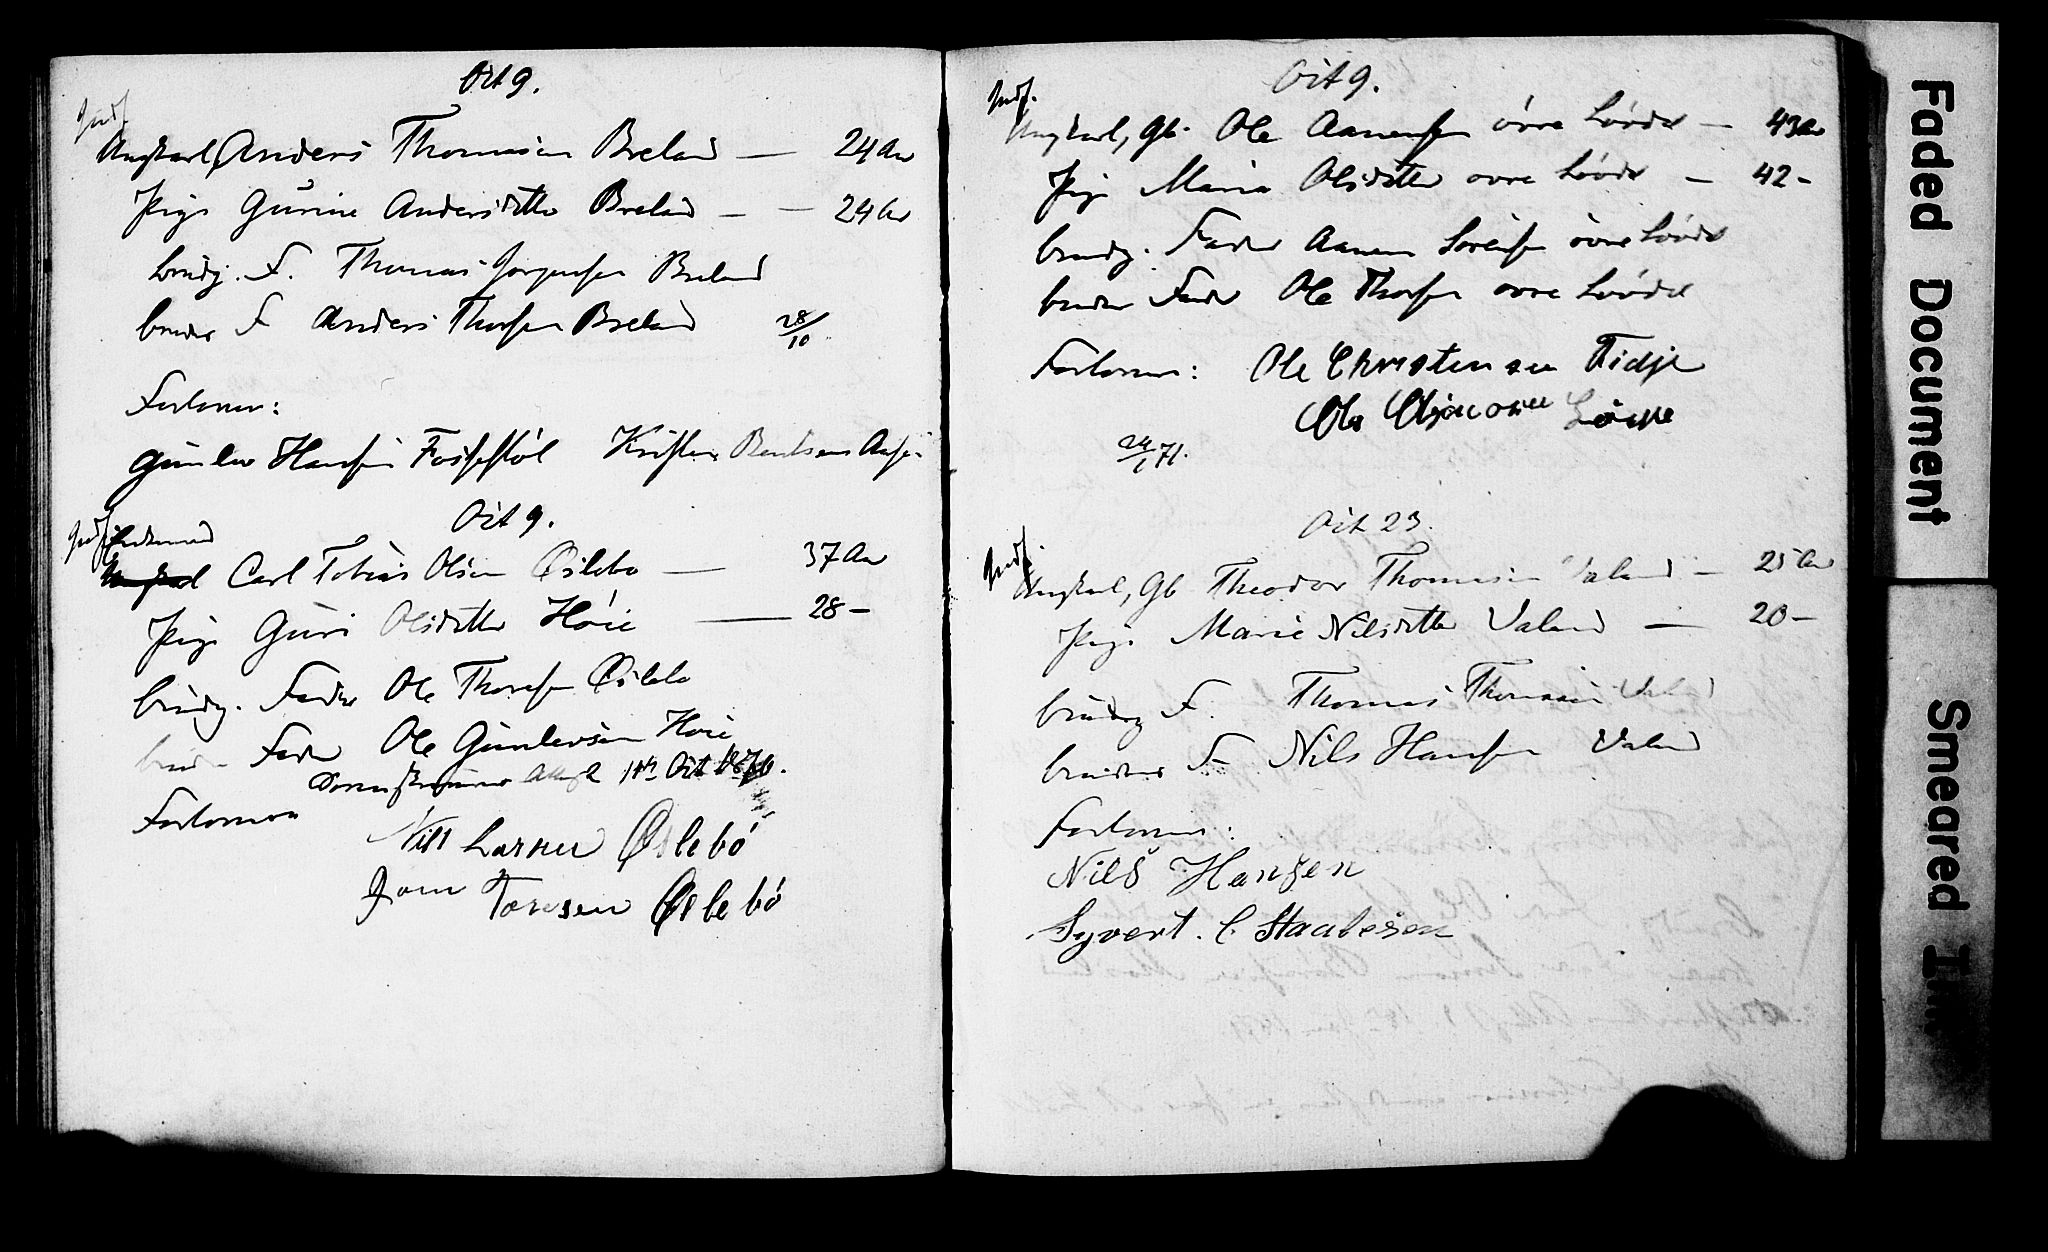 Oct 9.
Indf.
Ungkarl, Anders Thomasen Breland — 24 Aar
Pige Gurine Andersdtter Breland — — 24 Aar
brudg. F. Thomas Jørgensen Breland
brudens F Anders Thorsen Breland 28/10
Forlover:
Gunder Hansen Fossestøl Kristen Bentsen
Oct 9.
Indf. Enkemand
Ungkarl Carl Tobias Olsen Øslebø — 37 Aar
Pige Guri Olsdtter Høie — 28 —
brudg. Fader Ole Thoresen Øslebø
brud Fader Ole Gundersen Høie
11te Oct 1870.
Forlovere
Nils Larsen Øslebó
Jom Toresen Øslebó
Oct 9.
Indf.
Ungkarl, Gb. Ole Aanensen óvre Lóvdal — 43 Aar
Pige Maria Olsdtter ovre Lóvdal — 42 —
brudg. Fader Aanen Sorensen óvre Lóvdal
brudens Fader Ole Thorsen ovre Lóvdal
Forlovere: Ole Christensen Tidje
Ole
24/1 71.
Oct 23.
Indf.
Ungkarl, Gb Theodor Thomasen Valand — 25 Aar
Pige Marie Nilsdtter Valand — 20 —
brudg F. Thomas Thomasen Valand
brudens F Nils Hansen Valand
Forlovere:
Nils Hansen
Syvert. C Staalesen
Faded Document
Smeared